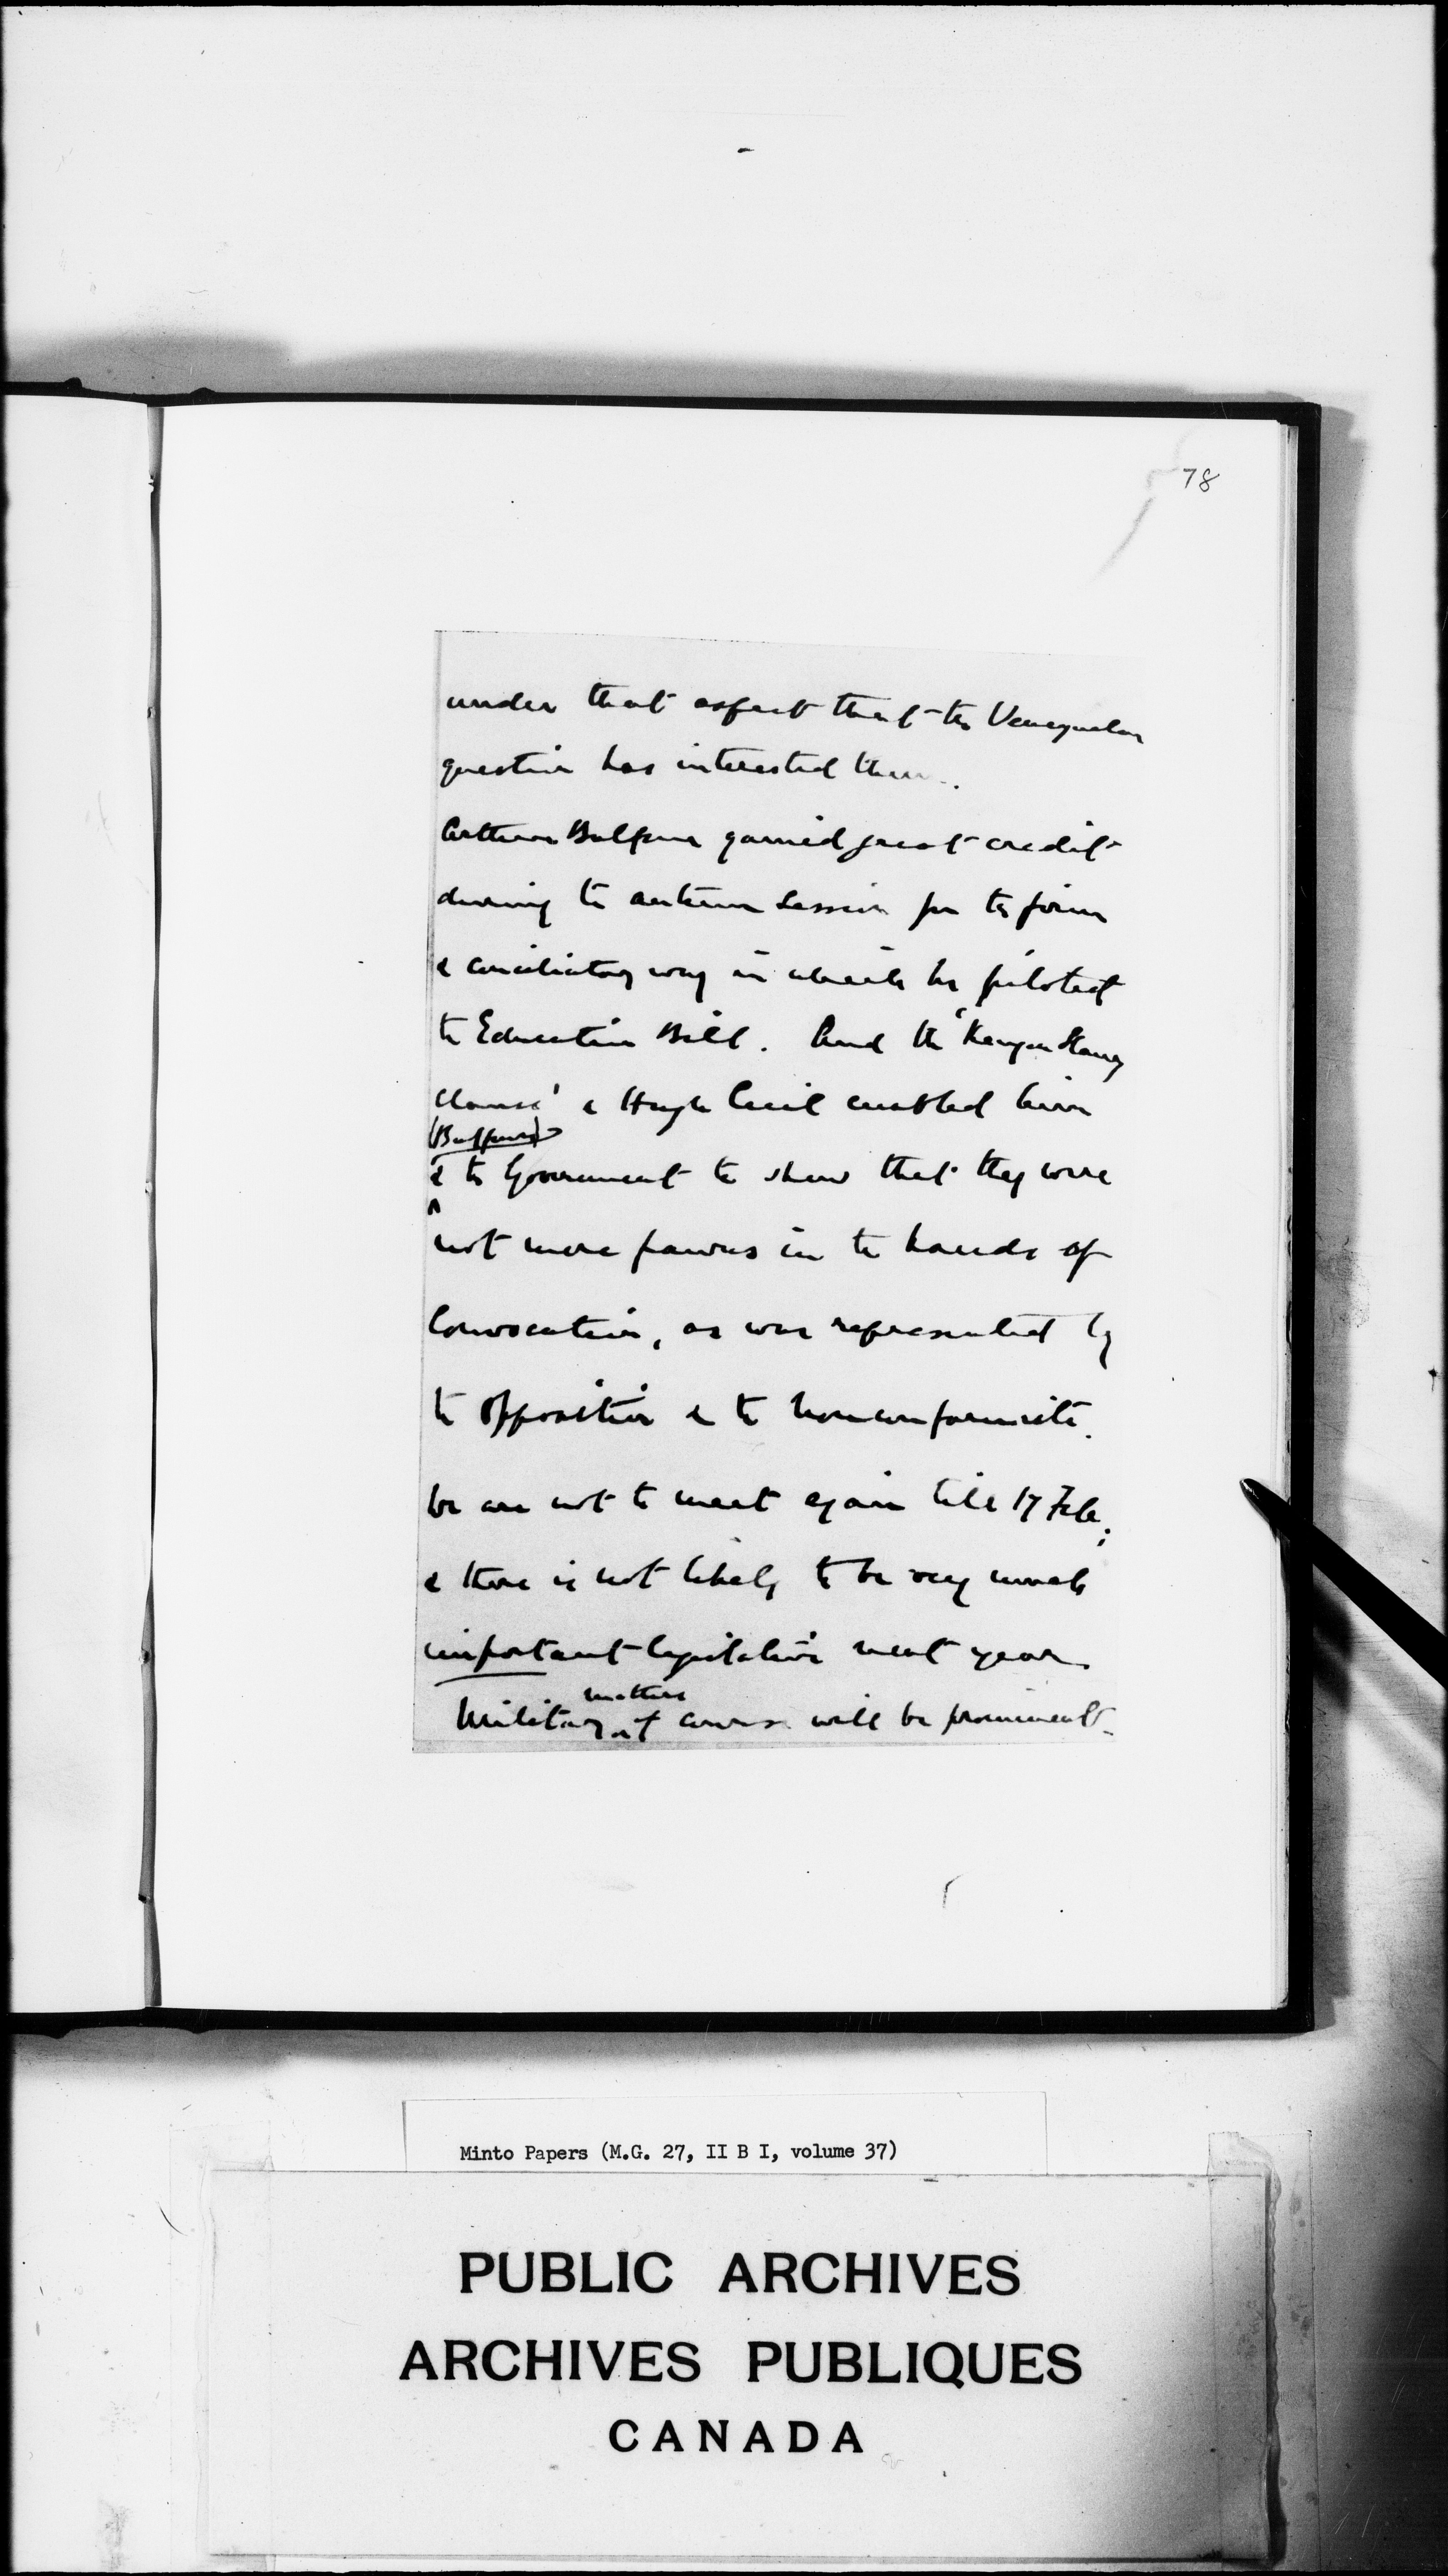 78
under that aspect that the Venezuelan
question has interested them.
Arthur Balfour gained great credit
during the autumn session for the firm
& conciliatory way in which he piloted
the Education Bill. And the 'Kenyon Slaney
clause' & Hugh Cecil enabled him
(Balfour)
& the Government to show that they were
not mere pawns in the hands of
Convocation, as was represented by
the opposition & the Nonconformists.
We are not to meet again till 17 Feb;
& there is not likely to be very much
important legislation next year.
matters
Military of course will be prominent.
Minto Papers (M.G. 27, II B I, volume 37)
PUBLIC ARCHIVES
ARCHIVES PUBLIQUES
CANADA